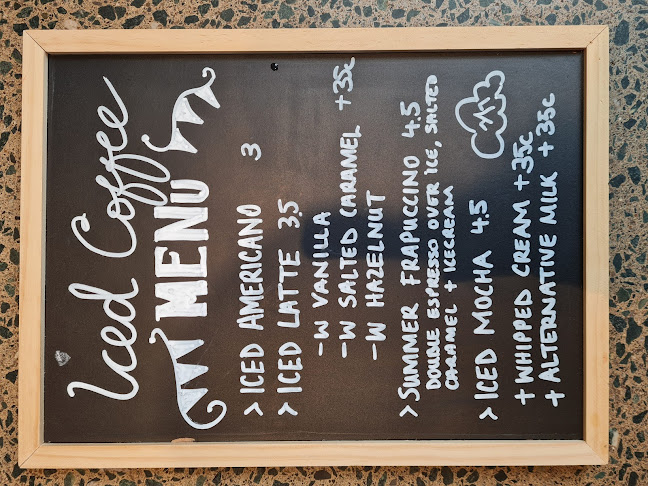 Iced Coffee
MENU
> ICED AMERICANO 3
> ICED LATTE 3.5
- W VANILLA
- W SALTED CARAMEL +35c
- W HAZELNUT
> SUMMER FRAPUCCINO 4.5
DOUBLE ESPRESSO OVER ICE, SALTED
CARAMEL + ICECREAM
> ICED MOCHA 4.5
+ WHIPPED CREAM +35c
+ ALTERNATIVE MILK +35c